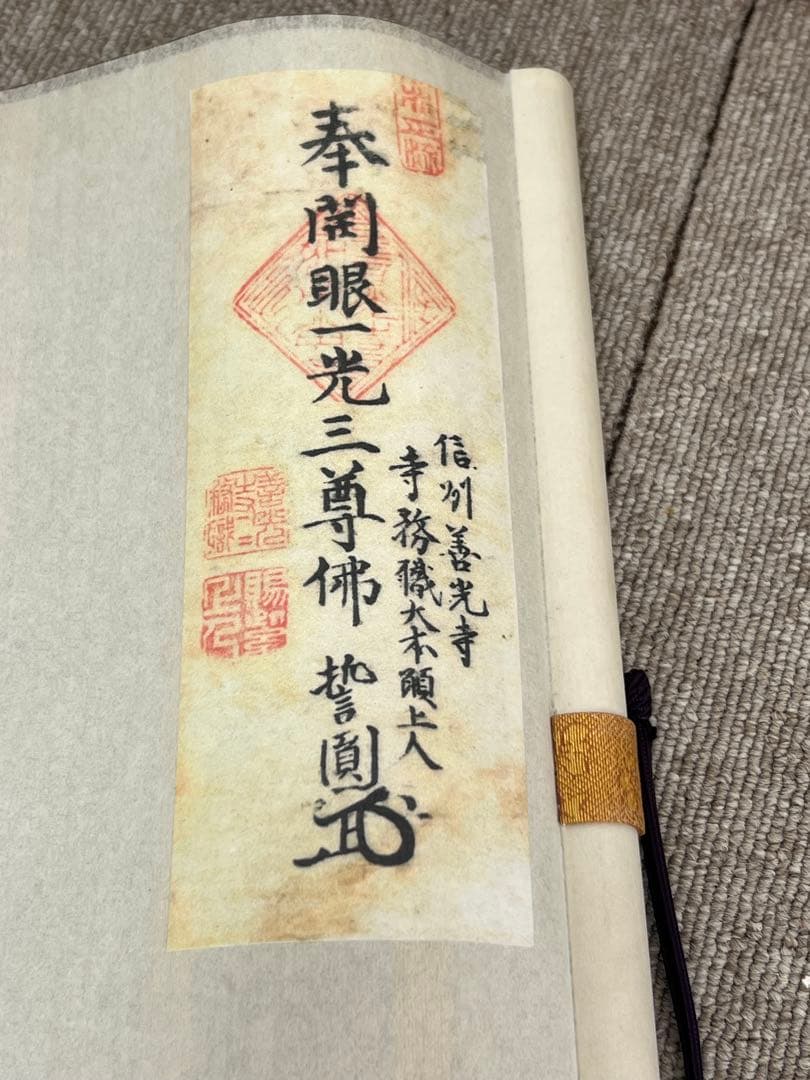 信州善光寺
寺務職大本願上人
奉開眼一光三尊佛 誓圓